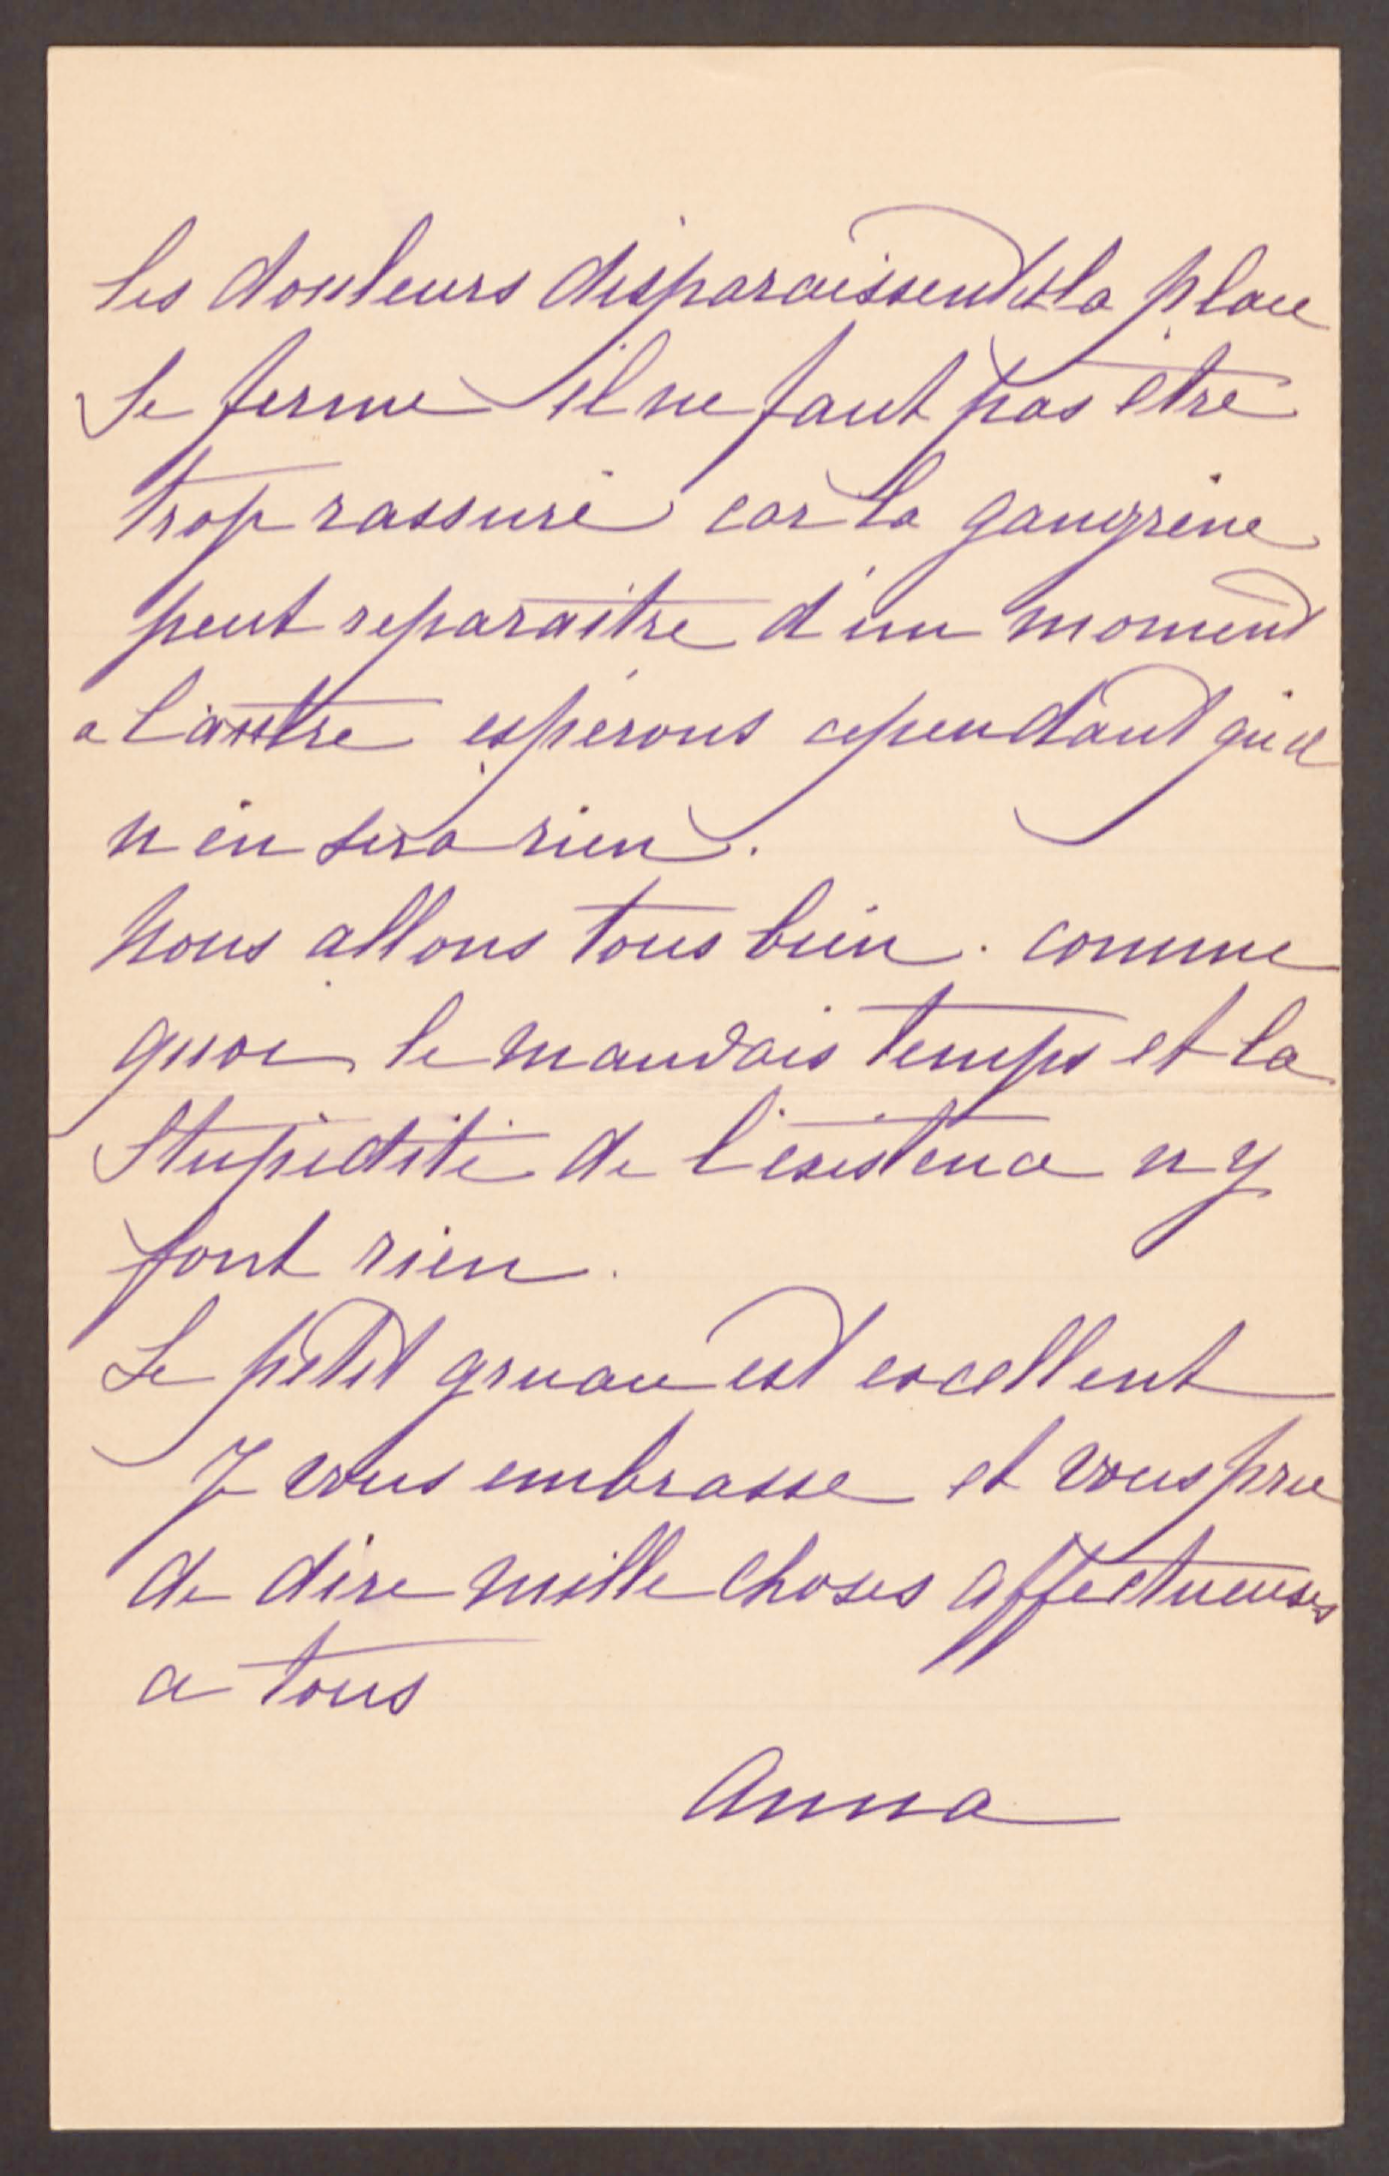 les douleurs disparaissent et la place
se ferme il ne faut pas être
trop rassuré car la gangrène
peut reparaître d'un moment
a l'autre espérons cependant qu'il
n'en sera rien.
Nous allons tous bien. comme
quoi le mauvais temps et la
stupidité de l'existence n'y
font rien.
Le petit gruau est excellent
Je vous embrasse et vous prie
de dire mille choses affectueuses
a tous
Anna